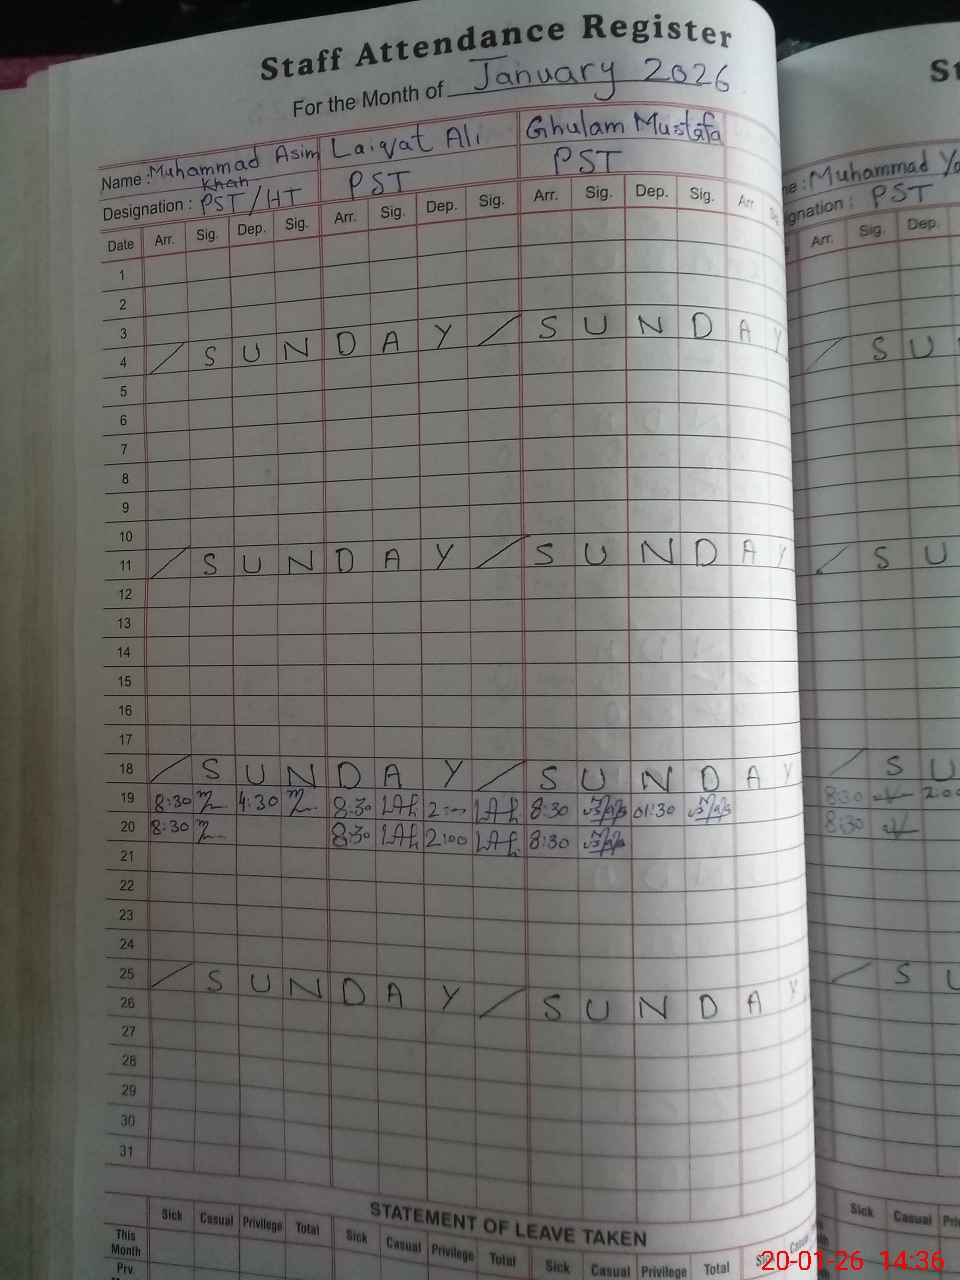 Staff Attendance Register
For the Month of January 2026
Name : Muhammad Asim Khan Laiqat Ali Ghulam Mustafa
Designation : PST/HT PST PST
Date Arr. Sig. Dep. Sig. Arr. Sig. Dep. Sig. Arr. Sig. Dep. Sig. Arr
1
2
3
4 / S U N D A Y / S U N D A Y
5
6
7
8
9
10
11 / S U N D A Y / S U N D A Y
12
13
14
15
16
17
18 / S U N D A Y / S U N D A Y
19 8:30 4:30 8:30 LAh 2:00 LAh 8:30 01:30
20 8:30 8:30 LAh 2:00 LAh 8:30
21
22
23
24
25 / S U N D A Y / S U N D A Y
26
27
28
29
30
31
STATEMENT OF LEAVE TAKEN
Sick Casual Privilege Total Sick Casual Privilege Total Sick Casual Privilege Total
This Month
Prv.
St
Muhammad
PST
Arr. Sig. Dep.
/ S U
/ S U
/ S U
8:30 2:00
8:30
/ S U
Sick Casual
20-01-26 14:36